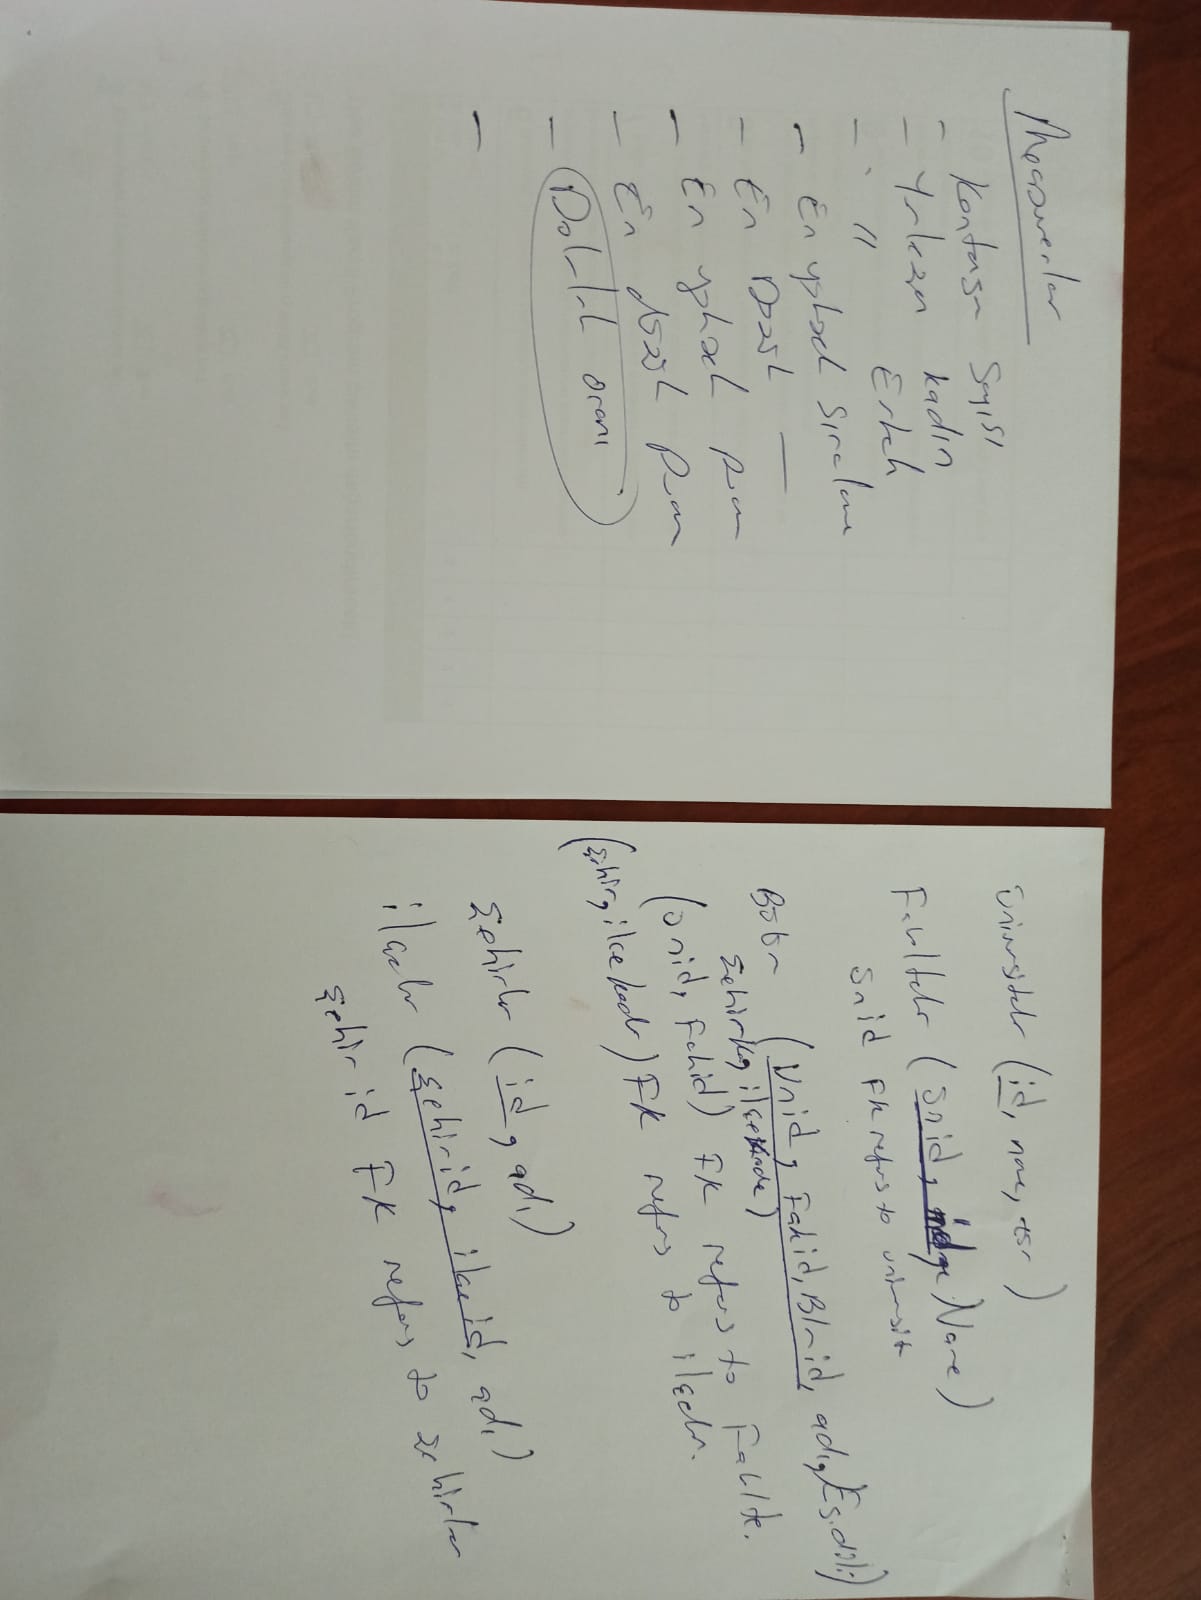 Measurelar
- Kontenjan Sayısı
- Yerleşen kadın
- " Erkek
- En yüksek Sıralama
- En Düşük —
- En yüksek puan
- En düşük Puan
- Doluluk oranı
-
Üniversiteler (id, name, )
Fakülteler (Ünid, id, Name)
Ünid FK refers to üniversite
Bölüm (Unid, Fakid, Blmid, adı, Eğ.dili)
Şehirk, ilçekode)
(Ünid, Fakid) FK refers to Fakülte.
(Şehir, ilçe kodu) FK refers to ilçeler.
Şehirler (id, adı)
ilçeler (Şehirid, ilçeid, adı)
Şehir id FK refers to Şehirler